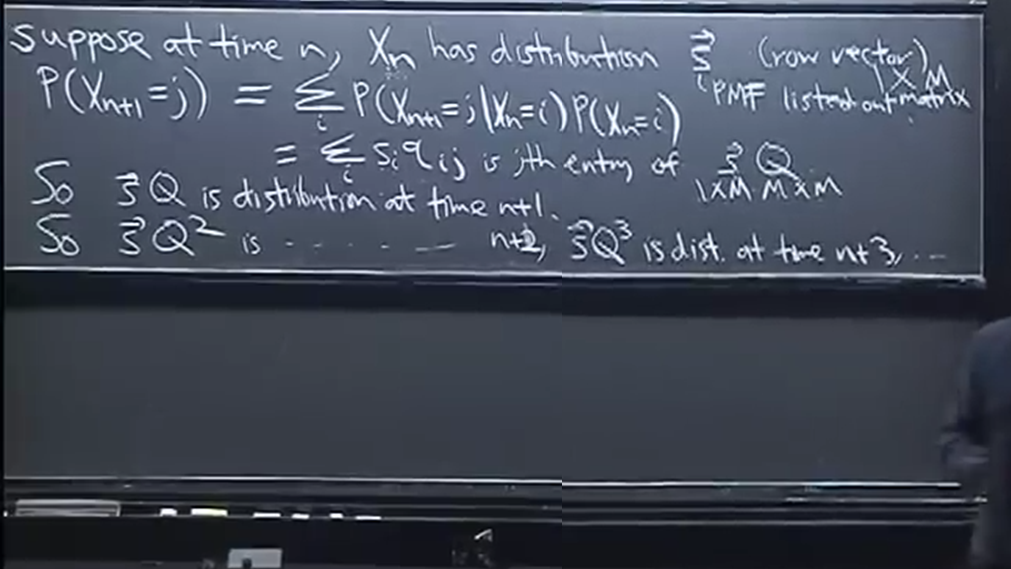 suppose at time n, Xₙ has distribution s⃗ (row vector) 1×M matrix
PMF listed out
P(Xₙ₊₁=j) = Σᵢ P(Xₙ₊₁=j|Xₙ=i)P(Xₙ=i)
= Σᵢ sᵢ qᵢⱼ is jth entry of s⃗ Q
1×M M×M
So s⃗ Q is distribution at time n+1.
So s⃗ Q² is - - - - - - n+2, s⃗Q³ is dist. at time n+3, ...